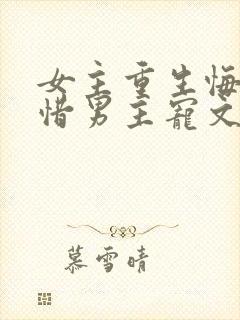 女主重生悔
惜男主寵文
慕雪晴